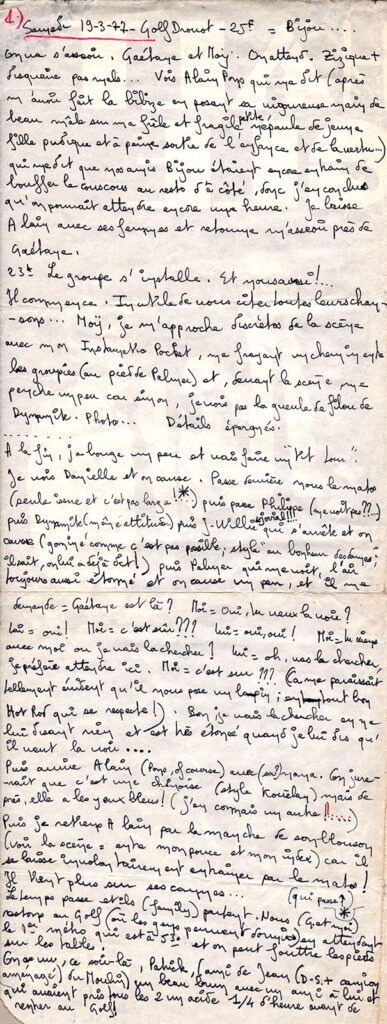 1)
Samedi 19-3-77 - Golf Drouot - 25F = Bijou ....
On va s'asseoir. Gaétane et Moi. On attend. Zizique +
disquaire pas mals... Vois Alain Pons qui me dit (après
m'avoir fait la bibize en posant sa vigoureuse main de
beau mâle sur ma frêle et fragile petite épaule de jeune
fille pudique et à peine sortie de l'enfance et de la vertu...)
qui me dit que nos amis Bijou étaient encore en train de
bouffer le couscous au resto d'à côté, donc j'en conclus
qu'on pouvait attendre encore une heure. Je laisse
Alain avec ses femmes et retourne m'asseoir près de
Gaétane.
23h Le groupe s'installe. Et nous aussi!...
Il commence. Inutile de vous citer toutes leurs chan-
-sons... Moi, je m'approche discrétos de la scène
avec mon Instamatic Pocket, me frayant un chemin entre
les groupies (au pied de Palmer) et, devant la scène me
penche un peu car sinon, je vois pas la gueule de filou de
Dynamite. Photo... Détails épargnés.
.......
A la fin, je bouge un peu et vais faire un
Je vois Danielle et on cause. Passe derrière nous le matos
(seule issue et c'est pas large!*) puis passe Philippe (me voit pas??...)
puis Dynamite (même attitude) puis J-Willie génial!!! qui s'arrête et on
cause (gominé comme c'est pas possible, style "au bonheur des dames",
il sait, on lui a déjà dit!) puis Palmer qui me voit, l'air
toujours aussi étonné et on cause un peu, et il me
demande = Gaétane est là? Moi = oui, tu veux la voir?
Lui = oui! Moi = c'est sûr??? Lui = oui, oui! Moi = tu viens
avec moi ou je vais la chercher? Lui = oh, vas la chercher,
je préfère attendre ici. Moi = c'est sûr???. (ça me paraissait
tellement évident qu'il nous pose un lapin, en tout bon
Hot Rod qui se respecte!). Bon je vais la chercher en ne
lui disant rien et est très étonée quand je lui dis qu'il
veut la voir....
Puis arrive Alain (Pons, of course) avec (sa) nana. On jure-
-rait que c'est une chinoise (style Kouelan) mais de
près, elle a les yeux bleus! (j'en connais un autre!!....)
Puis je retiens Alain par la manche de son blouson
(voir la scène = entre mon pouce et mon index) car il
se laisse involontairement entraîner par le matos!
Il tient plus sur ses cannes... (qui passe?)*
Le temps passe et ils (family) partent. Nous (G. et moi)
restons au Golf (où les gens peuvent dormir) en attendant
le 1er métro qui est à 5h30 et on peut foutre les pieds
sur les tables.
On a vu, ce soir-là, Patrick, (ami de Jean (D.S. + camion
aménagé) du Moulin) un beau brun avec un ami à lui et
qui avaient pris tous les 2 un acide 1/4 d'heure avant de
rentrer au Golf